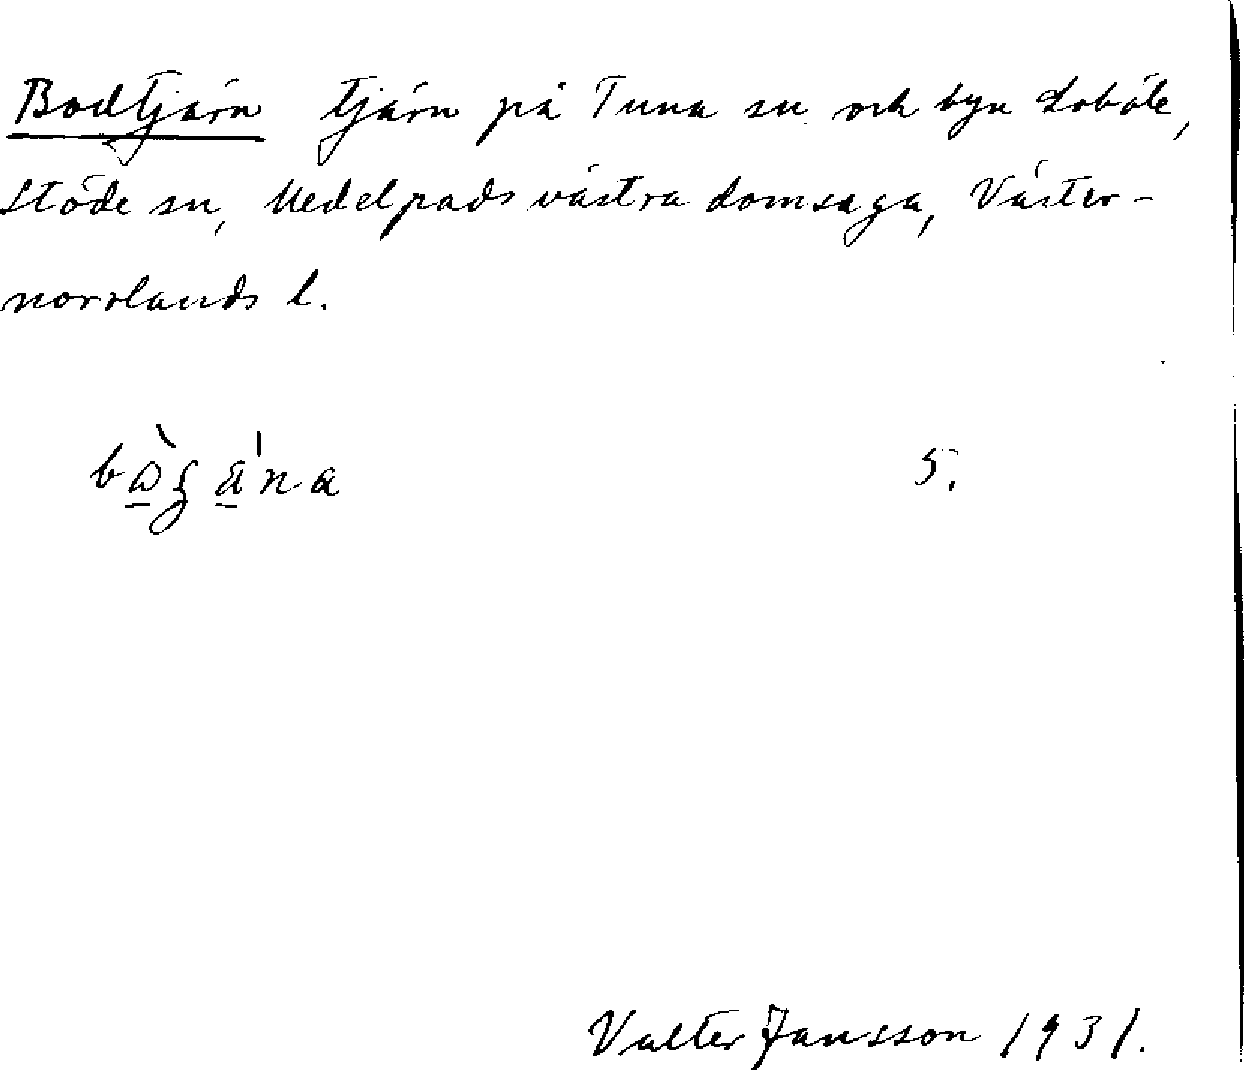 Bodtjärn tjärn på Tuna sn och byn Loböle,
Stöde sn, Medelpads västra domsaga, Väster-
norrlands l.
5.
Valter Jansson 1931.